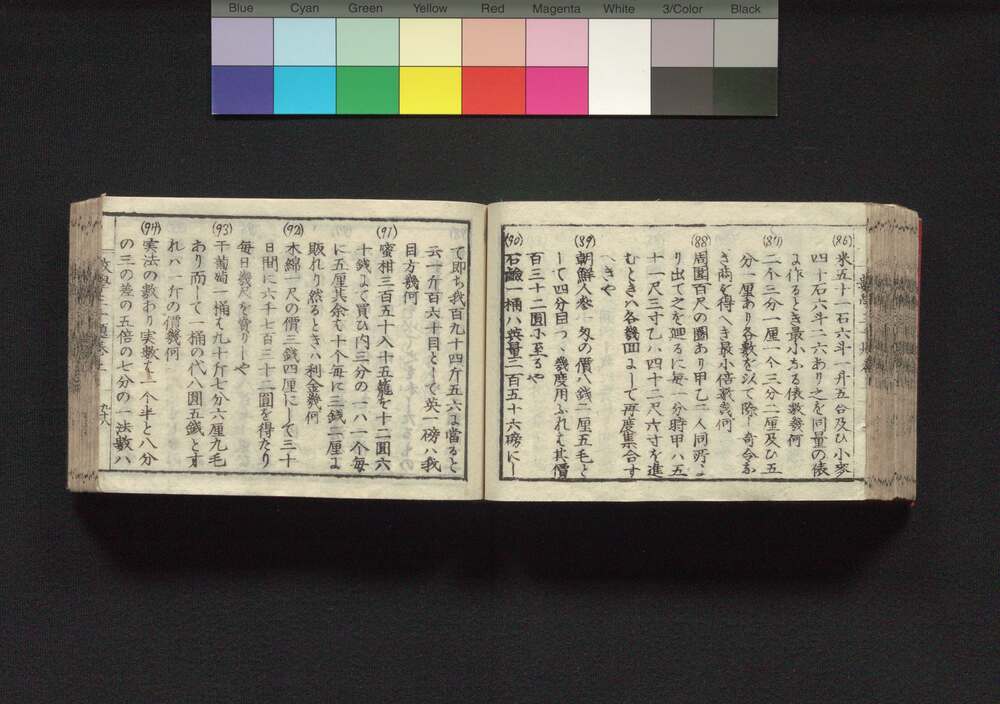 Blue Cyan Green Yellow Red Magenta White 3/Color Black
(86)
米五十一石六斗一升五合及ひ小麥
四十石六斗二六あり之を同量の俵
に作るとき最小なる俵數幾何
(87)
二个三分一厘一个三分二厘及ひ五
分一厘あり各數を以て除し奇令な
き商を得へき最小倍數幾何
(88)
周囲百尺の圏あり甲乙二人同所よ
り出て之を廻るに毎一分時甲ハ五
十一尺三寸乙ハ四十二尺六寸を進
むときハ各幾回にして再度集合す
へきや
(89)
朝鮮人参一匁の價八錢二厘五毛と
して四分目つゝ幾度用ふれは其價
百三十二圓に至るや
(90)
石鹸一桶ハ英量二百五十六磅にし
て即ち我百九十四斤五六に當ると
云一斤百六十目として英一磅ハ我
目方幾何
(91)
蜜柑三百五十八入十五籠を十二圓六
十錢にて買ひ内三分の一ハ一个毎
に五厘其余ハ十个毎に三錢二厘に
販れり然るときハ利金幾何
(92)
木綿一尺の價三錢四厘にして三十
日間に六千七百三十二圓を得たり
毎日幾尺を賣りしや
(93)
干葡萄一桶ハ九十斤七分六厘九毛
あり而して一桶の代八圓五錢とす
れハ一斤の價幾何
(94)
実法の數わり実數ハ一个半と八分
の三の差の五倍の七分の一法數ハ